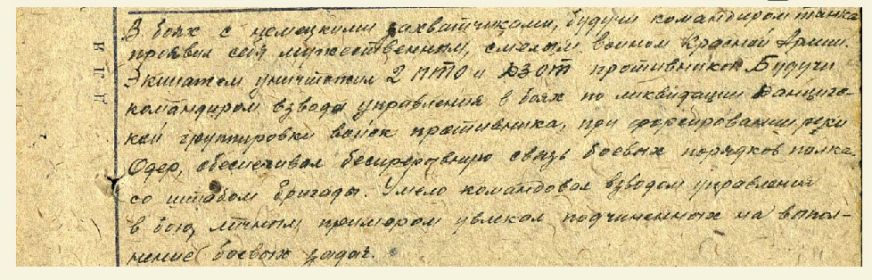 В боях с немецкими захватчиками, будучи командиром танка
проявил себя мужественным, смелым воином Красной Армии.
Экипажем уничтожил 2 ПТО и ДЗОТ противника. Будучи
командиром взвода управления в боях по ликвидации Данциг-
ской группировки войск противника, при форсировании реки
Одер, обеспечивал бесперебойную связь боевых порядков полка
со штабом бригады. Умело командовал взводом управления
в бою, личным примером увлекал подчиненных на выпол-
нение боевых задач.